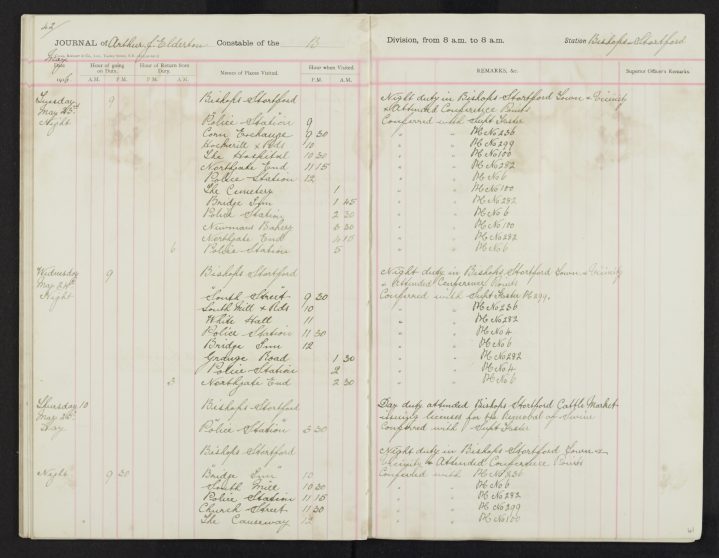 42
JOURNAL of Arthur J. Elderton Constable of the B
Division, from 8 a.m. to 8 a.m. Station Bishops Stortford
Hour of going on Duty. Hour of Return from Duty. Names of Places Visited. Hour when Visited. REMARKS, &c. Superior Officer's Remarks.
A.M. P.M. P.M. A.M. P.M. A.M.
May
Tuesday 9 Bishops Stortford Night duty in Bishops Stortford Town & Vicinity
Night & Attended Conference Points
Police Station 9 Conferred with Supt Foster
Corn Exchange 9 30 " " PC No 236
Hockerill X Rds 10 " " PC No 299
The Hospital 10 30 " " PC No 100
Northgate End 11 15 " " PC No 282
Police Station 12 " " PC No 6
The Cemetery 1 " " PC No 100
Bridge Inn 1 45 " " PC No 282
Police Station 2 30 " " PC No 6
Newmans Bakery 3 30 " " PC No 100
Northgate End 4 15 " " PC No 282
6 Police Station 5 " " PC No 6
Wednesday 9 Bishops Stortford Night duty in Bishops Stortford Town & Vicinity
Night & Attended Conference Points
"South Street" 9 30 Conferred with Supt Foster PC 299,
South Mill X Rds 10 " " PC No 236
White Hall 11 " " PC No 282
Police Station 11 30 " " PC No 4
Bridge Inn 12 " " PC No 6
Grange Road 1 30 " " PC No 282
Police Station 2 " " PC No 4
3 Northgate End 2 30 " " PC No 6
Thursday 10 Bishops Stortford Day duty attended Bishops Stortford Cattle Market
issuing licenses for the Removal of Swine
Day "Police Station" 3 30 Conferred with Supt Foster
Bishops Stortford Night duty in Bishops Stortford Town &
Vicinity & Attended Conference Points
Night 9 30 "Bridge Inn" 10 Conferred with PC No 236
South Mill 10 30 " " PC No 6
Police Station 11 15 " " PC No 282
Church Street 11 30 " " PC No 299
The Causeway 12 " " PC No 100